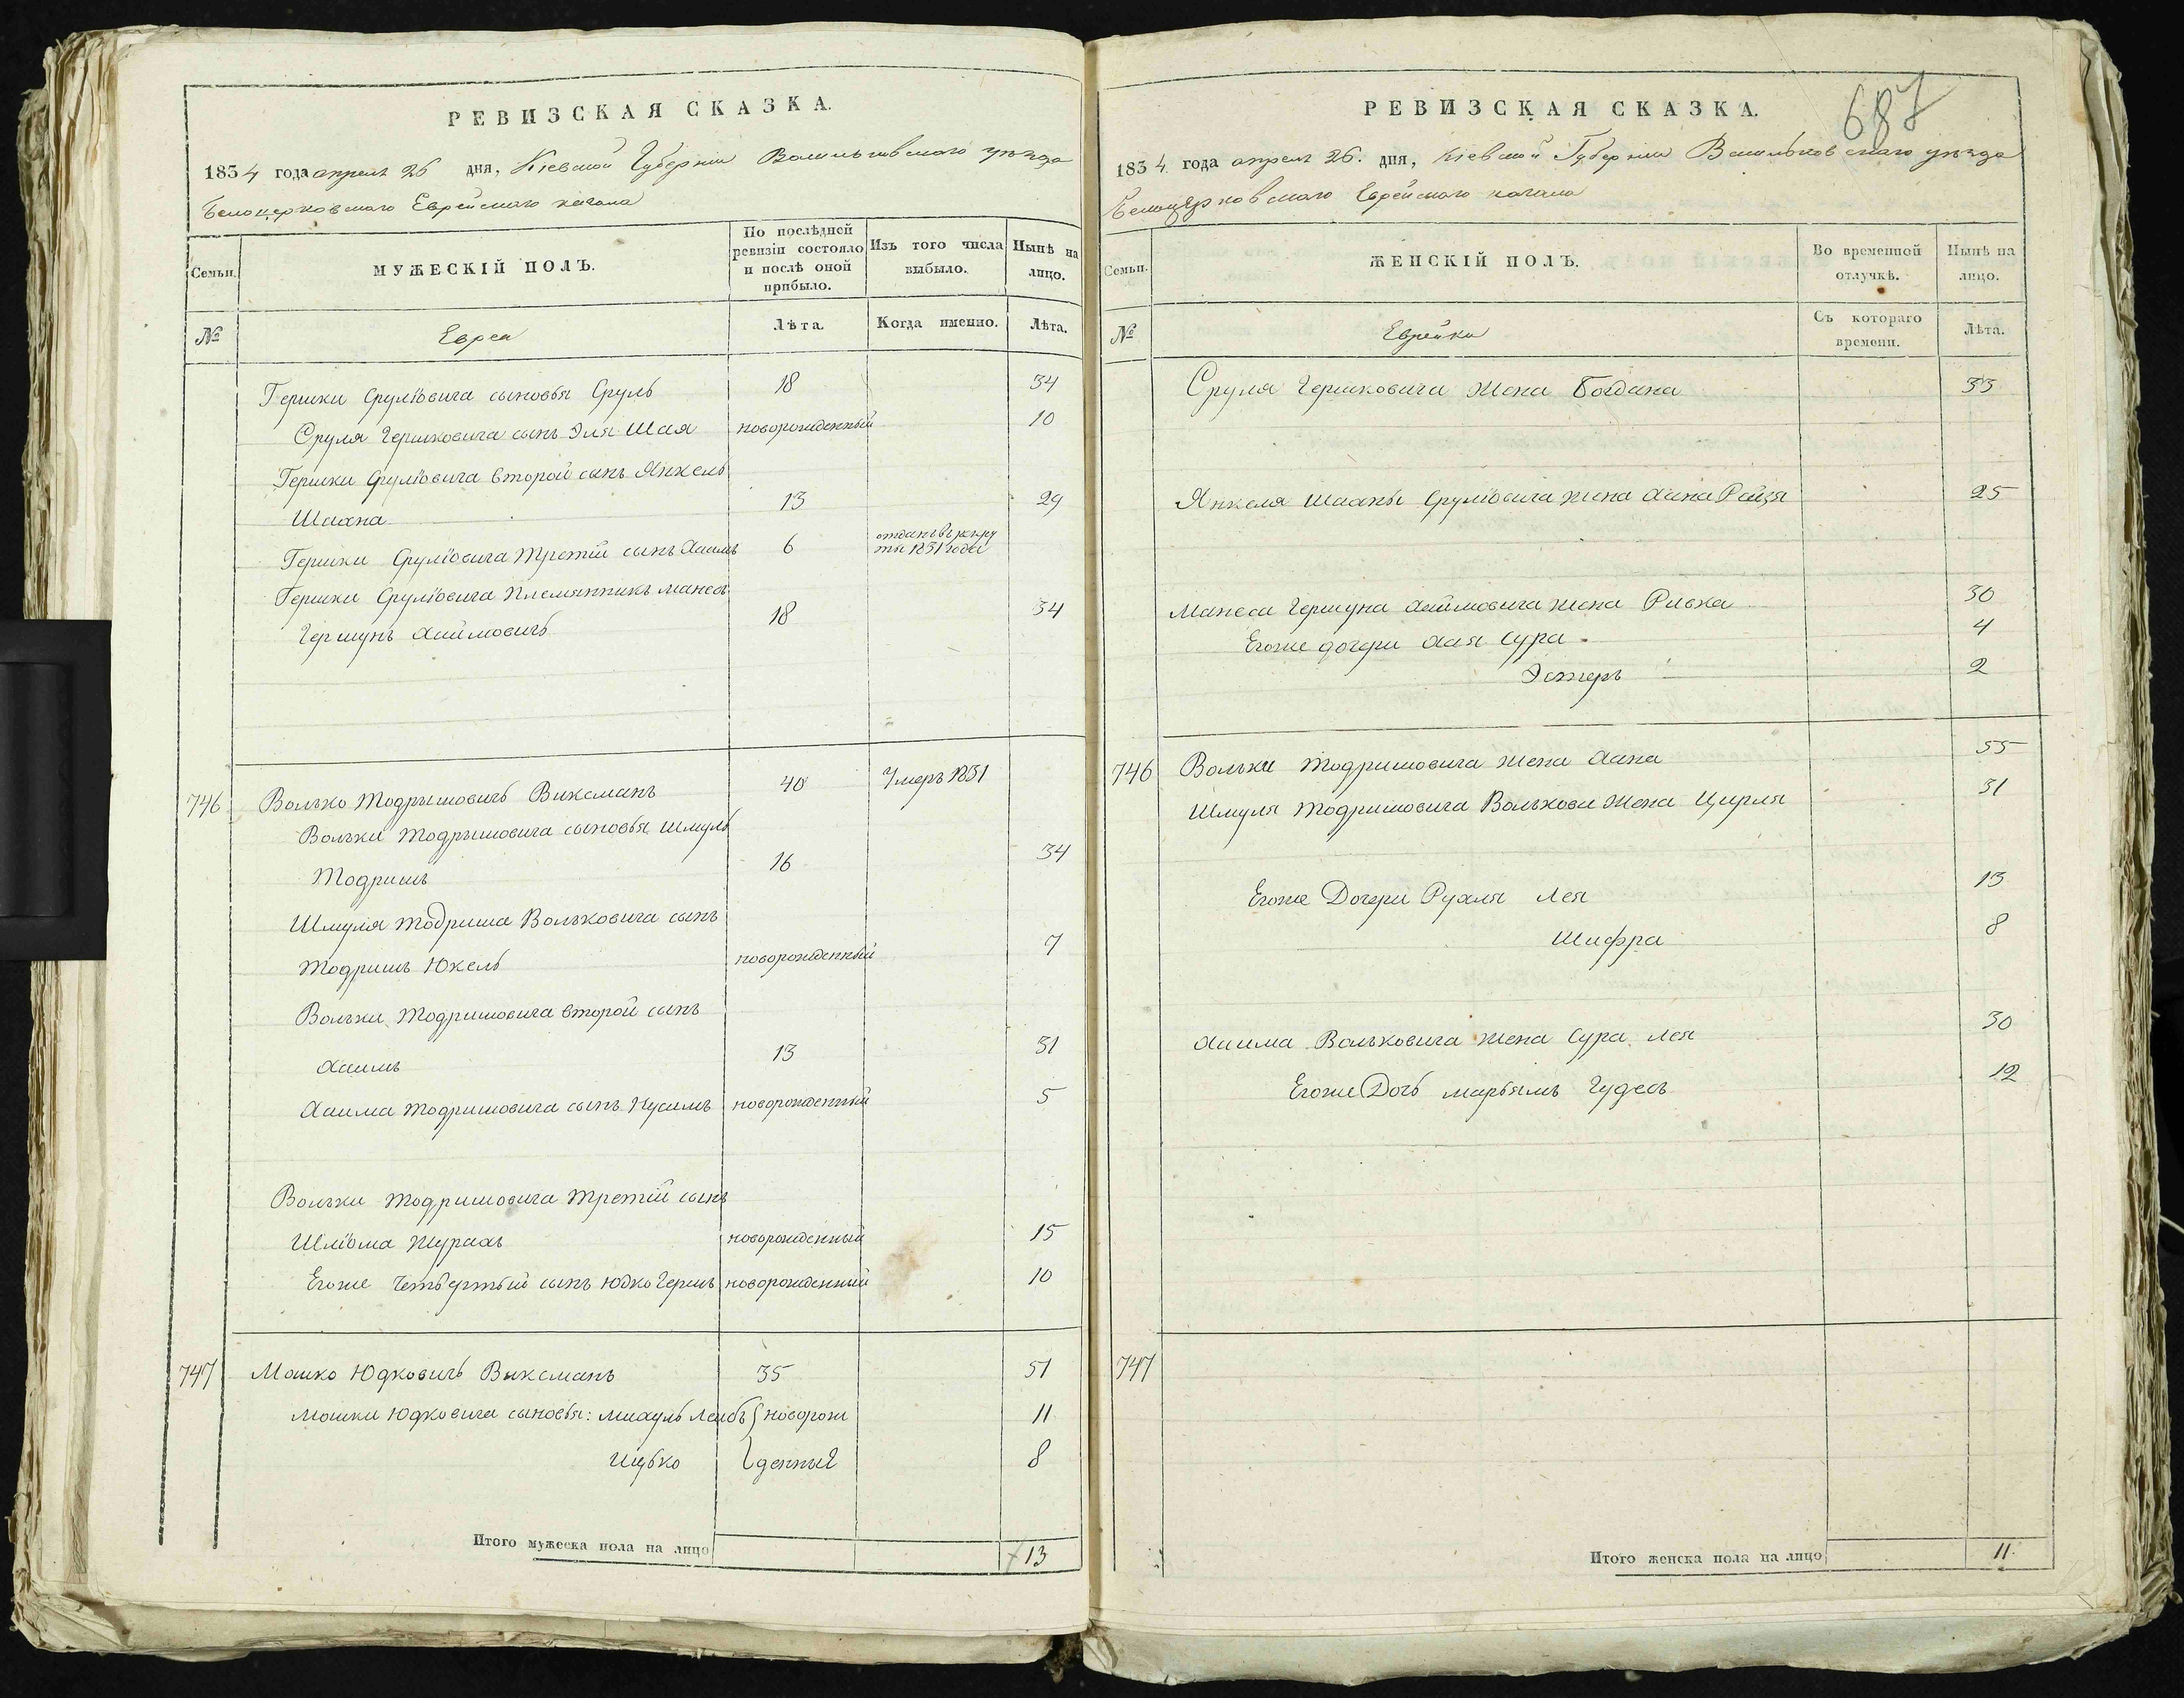 РЕВИЗСКАЯ СКАЗКА.
1834 года апреля 26 дня, Кіевской Губерніи Васильковскаго уѣзда
Белоцерковскаго Еврейскаго кагала
Семьи.
МУЖЕСКІЙ ПОЛЪ.
По послѣдней ревизіи состояло и послѣ оной прибыло.
Изъ того числа выбыло.
Нынѣ на лицо.
№
Евреи
Лѣта.
Когда именно.
Лѣта.
Гершки Срулiовича сыновья Сруль 18 34
Сруля Гершковича сынъ Эля Шая новорожденный 10
Гершки Срулiовича второй сынъ Янкель
Шахна 13 29
Гершки Срулiовича третій сынъ Хаимъ 6 отданъ в рекру
ты 1831 года
Гершки Срулiовича племянникъ Манесъ
Гершунъ Хаймовичь 18 34
746 Волько Тодрышовичь Виксманъ 40 Умеръ 1831
Вольки Тодрышовича сыновья Шмуль
Тодришъ 16 34
Шмуля Тодриша Вольковича сынъ
Тодришъ Юкель новорожденный 7
Вольки Тодришовича второй сынъ
Хаимъ 13 31
Хаима Тодришовича сынъ Нусимъ новорожденный 5
Вольки Тодришовича третій сынъ
Шлiома новорожденный 15
Егоже Четвертый сынъ Юдко Гершъ новорожденный 10
747 Мошко Юдковичь Виксманъ 35 51
Мошки Юдковича сыновья: Михуль Лейбъ новорож 11
Ицько денные 8
Итого мужеска пола на лицо 13
687
РЕВИЗСКАЯ СКАЗКА.
1834 года апреля 26. дня, Кіевской Губерніи Васильковскаго уѣзда
Белоцерковскаго Еврейскаго кагала
Семьи.
ЖЕНСКІЙ ПОЛЪ.
Во временной отлучкѣ.
Нынѣ на лицо.
№
Еврейки
Съ котораго времени.
Лѣта.
Сруля Гершковича жена Богдана 33
Янкеля Шахны Срулiовича жена Хана Рейзя 25
Манеса Гершуна Хаймовича жена Ривка 30
Егоже дочери Хая Сура 4
Эстеръ 2
746 Вольки Тодришовича жена Хана 55
Шмуля Тодришовича Волькови жена Цирля 31
Егоже Дочери Рухля Лея 13
Шифра 8
Хаима Вольковича жена Сура Лея 30
Егоже Дочь Марьямъ Гудесъ 12
747
Итого женска пола на лицо 11.